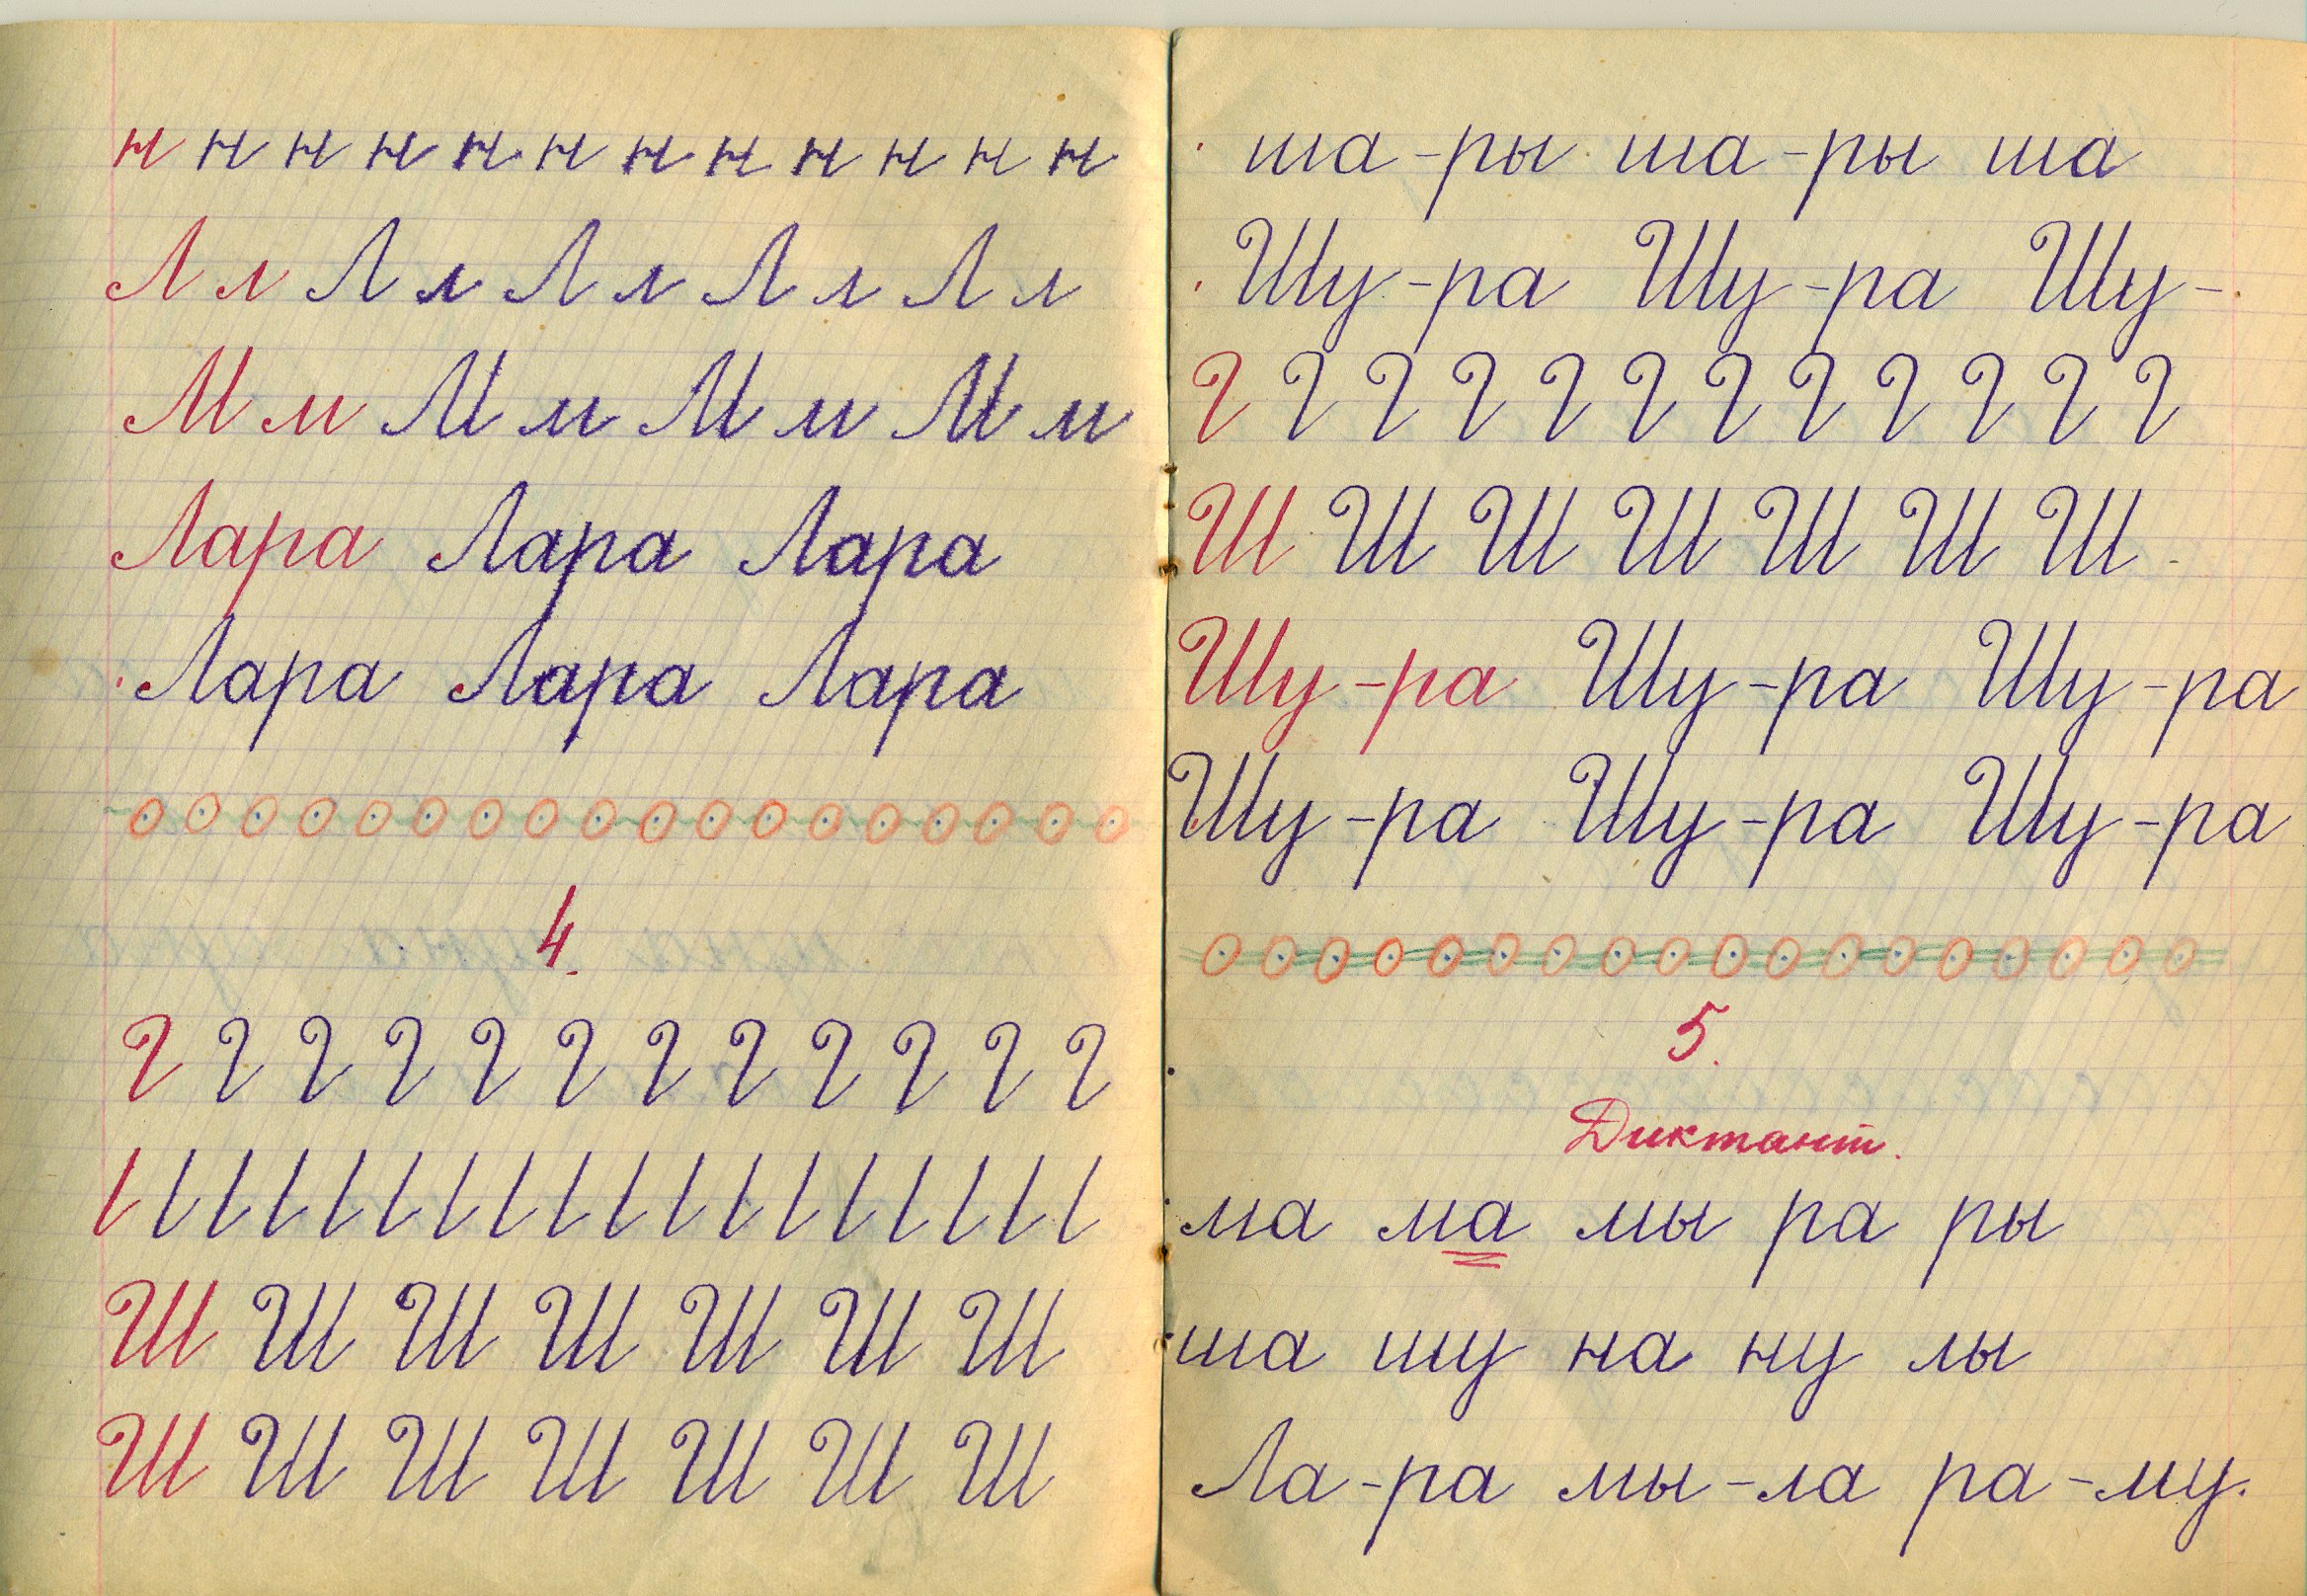 н н н н н н н н н н н н
Л л Л л Л л Л л Л л
М м М м М м М м
Лара Лара Лара
Лара Лара Лара
4.
Ш Ш Ш Ш Ш Ш Ш
Ш Ш Ш Ш Ш Ш Ш
ша-ры ша-ры ша
Шу-ра Шу-ра Шу-
Ш Ш Ш Ш Ш Ш Ш
Шу-ра Шу-ра Шу-ра
Шу-ра Шу-ра Шу-ра
5.
Диктант.
ма ма мы ра ры
ша шу на ну лы
Ла-ра мы-ла ра-му.